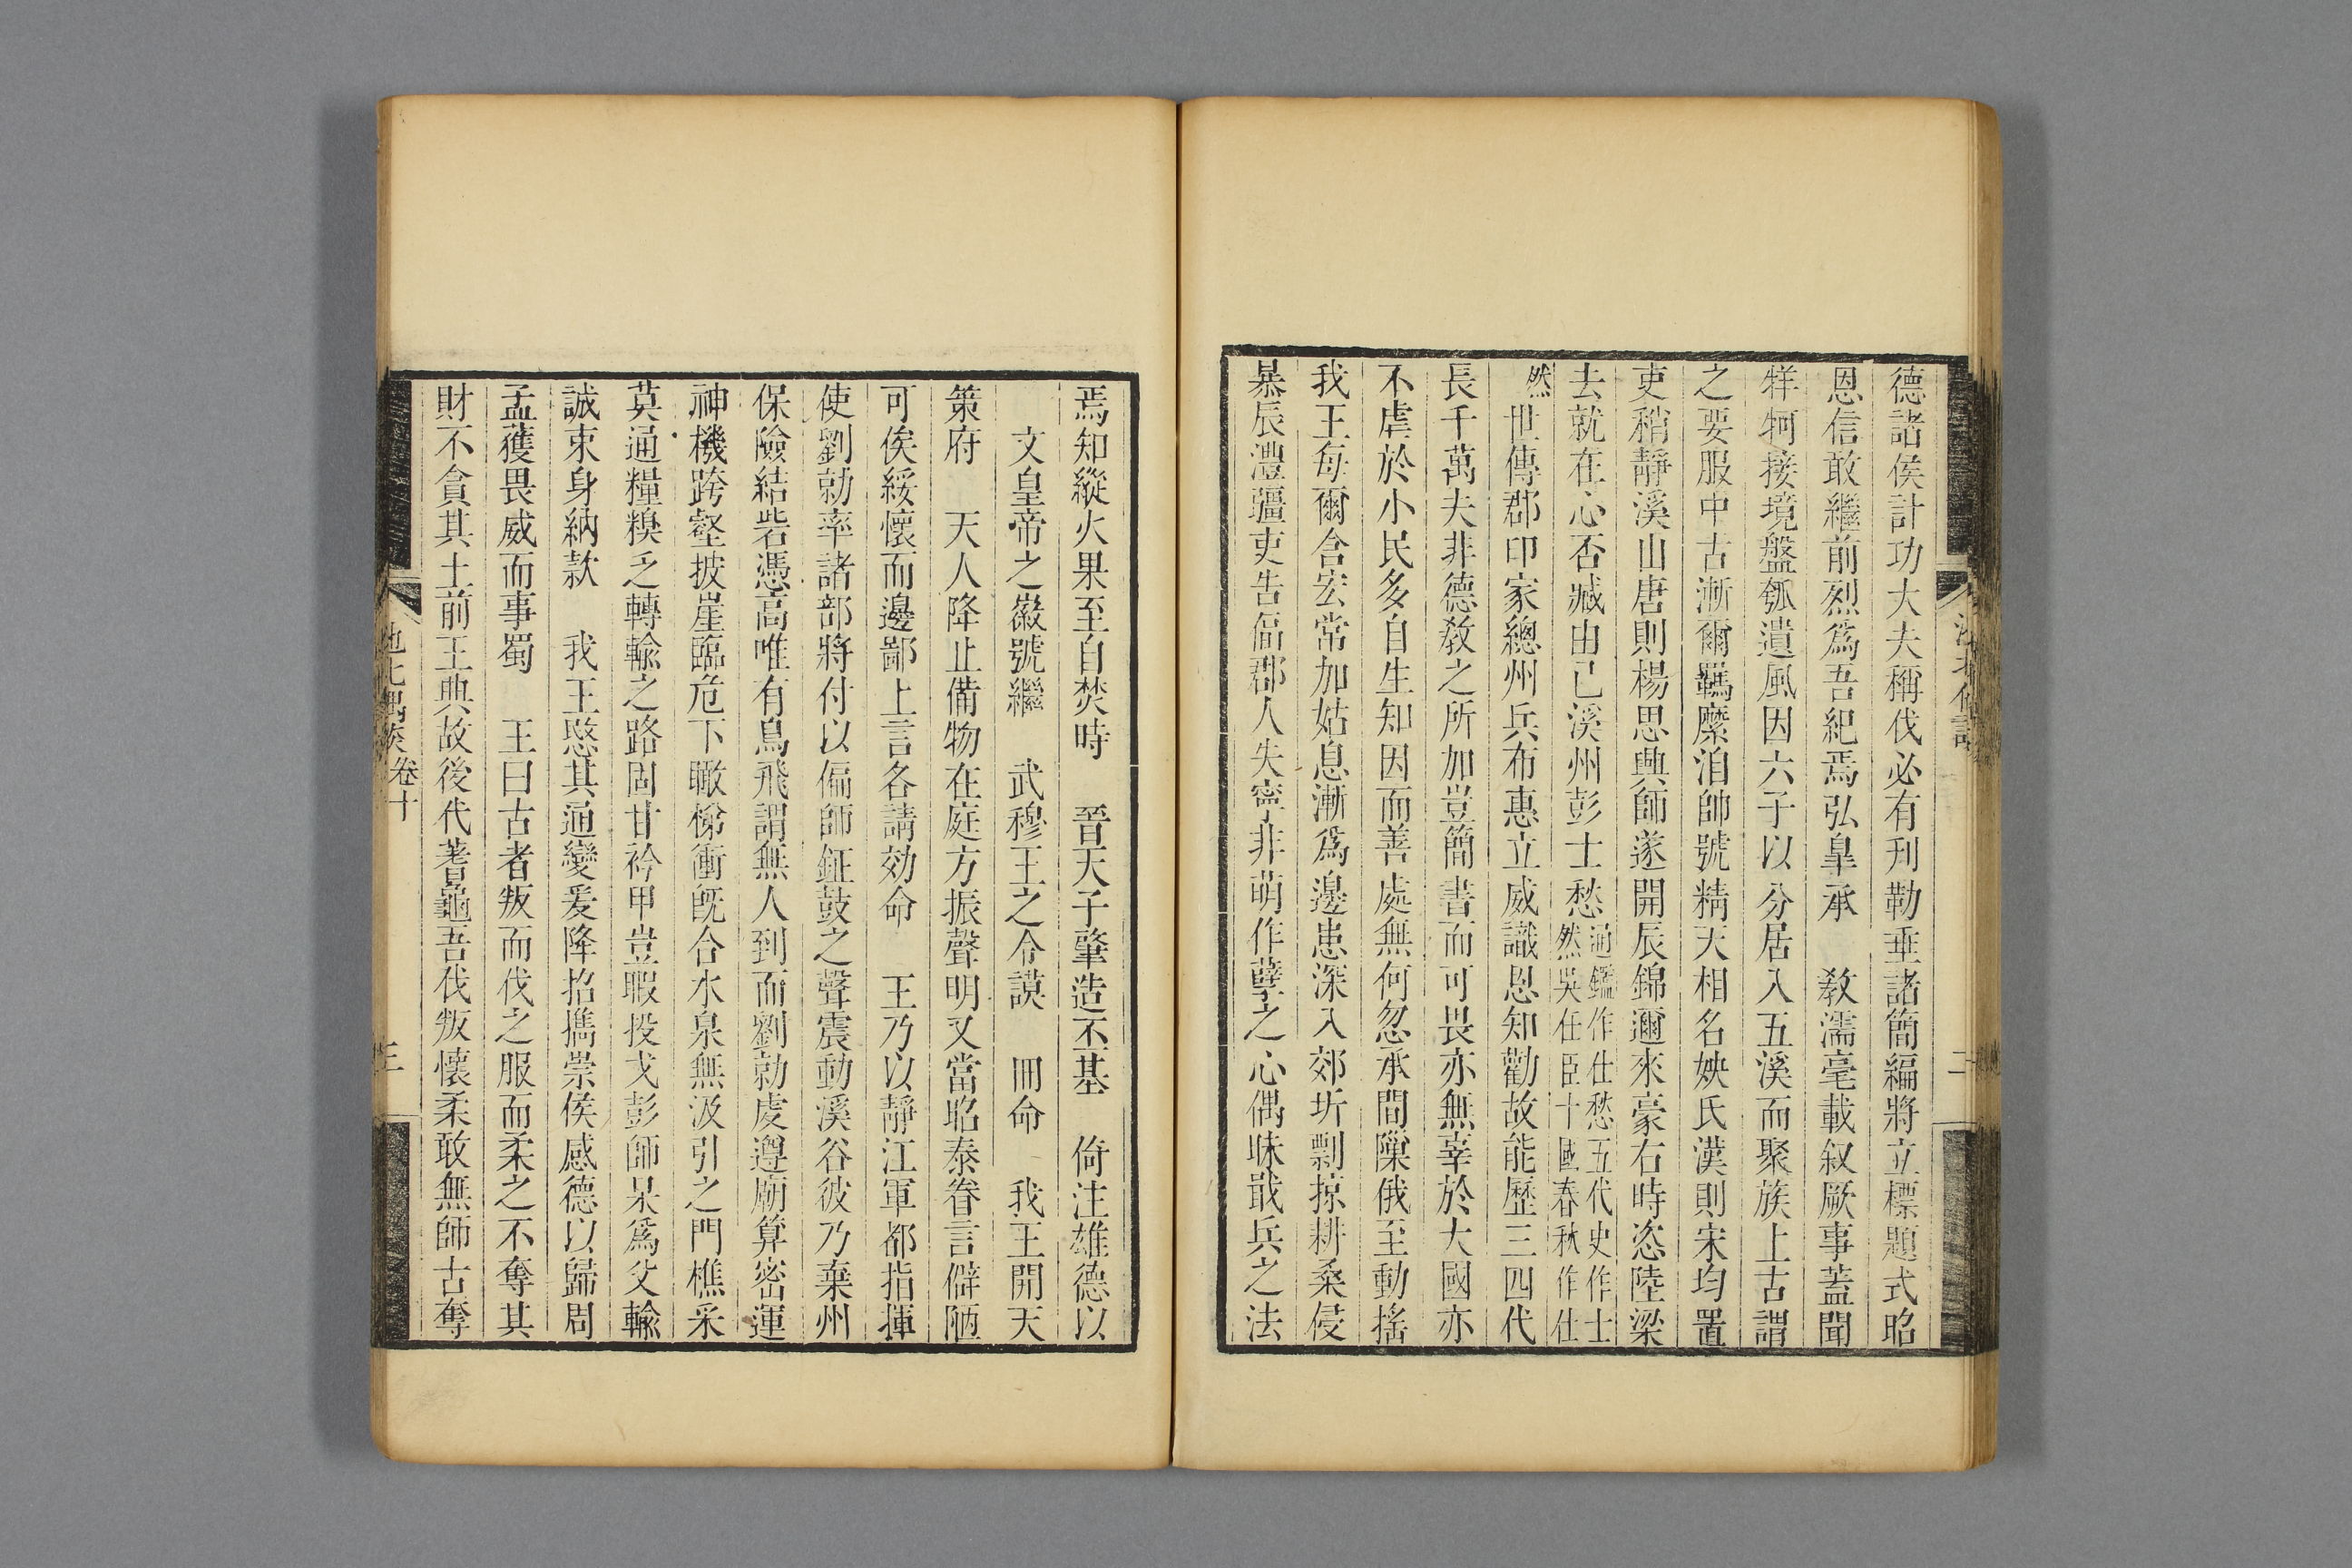 德諸侯計功大夫稱伐必有刋勒垂諸簡編將立標題式昭
恩信敢繼前烈爲吾紀焉弘皐承　教濡毫載叙厥事蓋聞
牂牁接境盤瓠遺風因六子以分居入五溪而聚族上古謂
之要服中古漸爾羈縻洎帥號精天相名姎氏漢則宋均置
吏稍靜溪山唐則楊思興師遂開辰錦邇來豪右時恣陸梁
去就在心否臧由已溪州彭士愁通鑑作仕愁五代史作士然吳任臣十國春秋作仕
然世傳郡印家總州兵布惠立威識恩知勸故能歷三四代
長千萬夫非德教之所加豈簡書而可畏亦無辜於大國亦
不虐於小民多自生知因而善處無何忽承間隟俄至動搖
我王每爾含宏常加姑息漸爲邊患深入郊圻剽掠耕桑侵
暴辰澧疆吏吿偪郡人失寧非萌作孽之心偶昧戢兵之法
焉知縱火果至自焚時　晉天子肇造丕基　倚注雄德以
文皇帝之徽號繼　武穆王之令謨　冊命　我王開天
策府　天人降止備物在庭方振聲明又當昭泰眷言僻陋
可俟綏懷而邊鄙上言各請効命　王乃以靜江軍都指揮
使劉勍率諸部將付以偏師鉦鼓之聲震動溪谷彼乃棄州
保險結砦憑高唯有鳥飛謂無人到而劉勍虔遵廟算密運
神機跨壑披崖臨危下瞰梯衝旣合水泉無汲引之門樵采
莫通糧糗乏轉輸之路固甘衿甲豈暇投戈彭師杲爲父輸
誠束身納款　我王愍其通變爰降招攜崇侯感德以歸周
孟獲畏威而事蜀　王曰古者叛而伐之服而柔之不奪其
財不貪其土前王典故後代蓍龜吾伐叛懷柔敢無師古奪
卷十
三